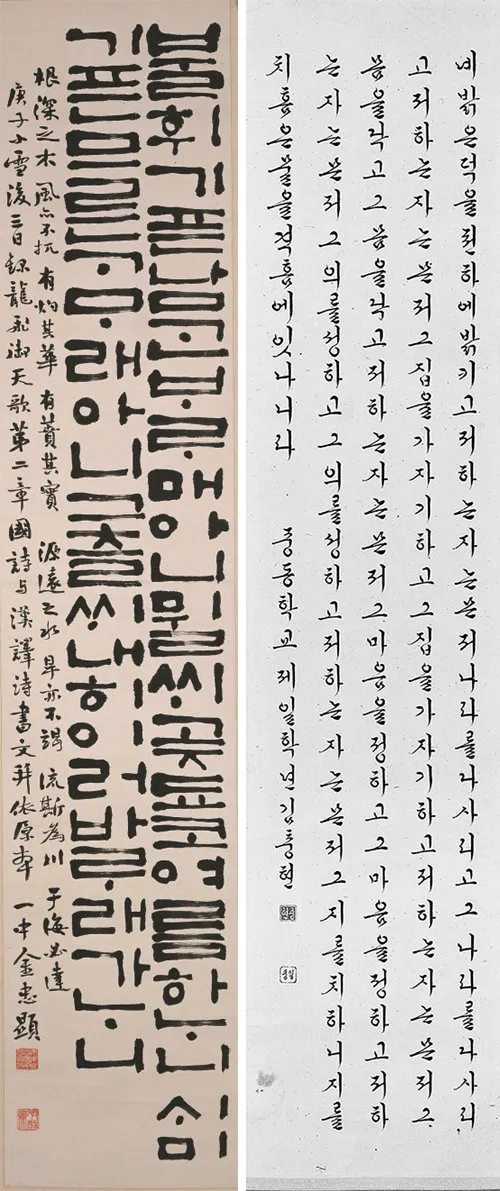 불휘기픈남ᄀᆞᆫᄇᆞᄅᆞ매아니뮐ᄊᆡ곶됴코여름하ᄂᆞ니ᄉᆡ미
기픈므른ᄀᆞᄆᆞ래아니그츨ᄊᆡ내히이러바ᄅᆞ래가ᄂᆞ니
根深之木 風亦不扤 有灼其華 有蕡其實 源遠之水 旱亦不竭 流斯為川 于海必達
庚子小雪後三日錄龍飛御天歌第二章國詩与漢譯詩書文幷依原本 一中金忠顯
녜밝은덕을텬하에밝키고져하는자는몬져나라를다사리고그나라를다사리
고져하는자는몬져그집을가자기하고그집을가자기하고져하는자는몬져그
몸을닥고그몸을닥고져하는자는몬져그마음을정하고그마음을정하고져하
는자는몬져그의를성하고그의를성하고져하는자는몬져그지를치하니지를
치홈은물을격홈에잇나니라 중동학교제일학년김충현